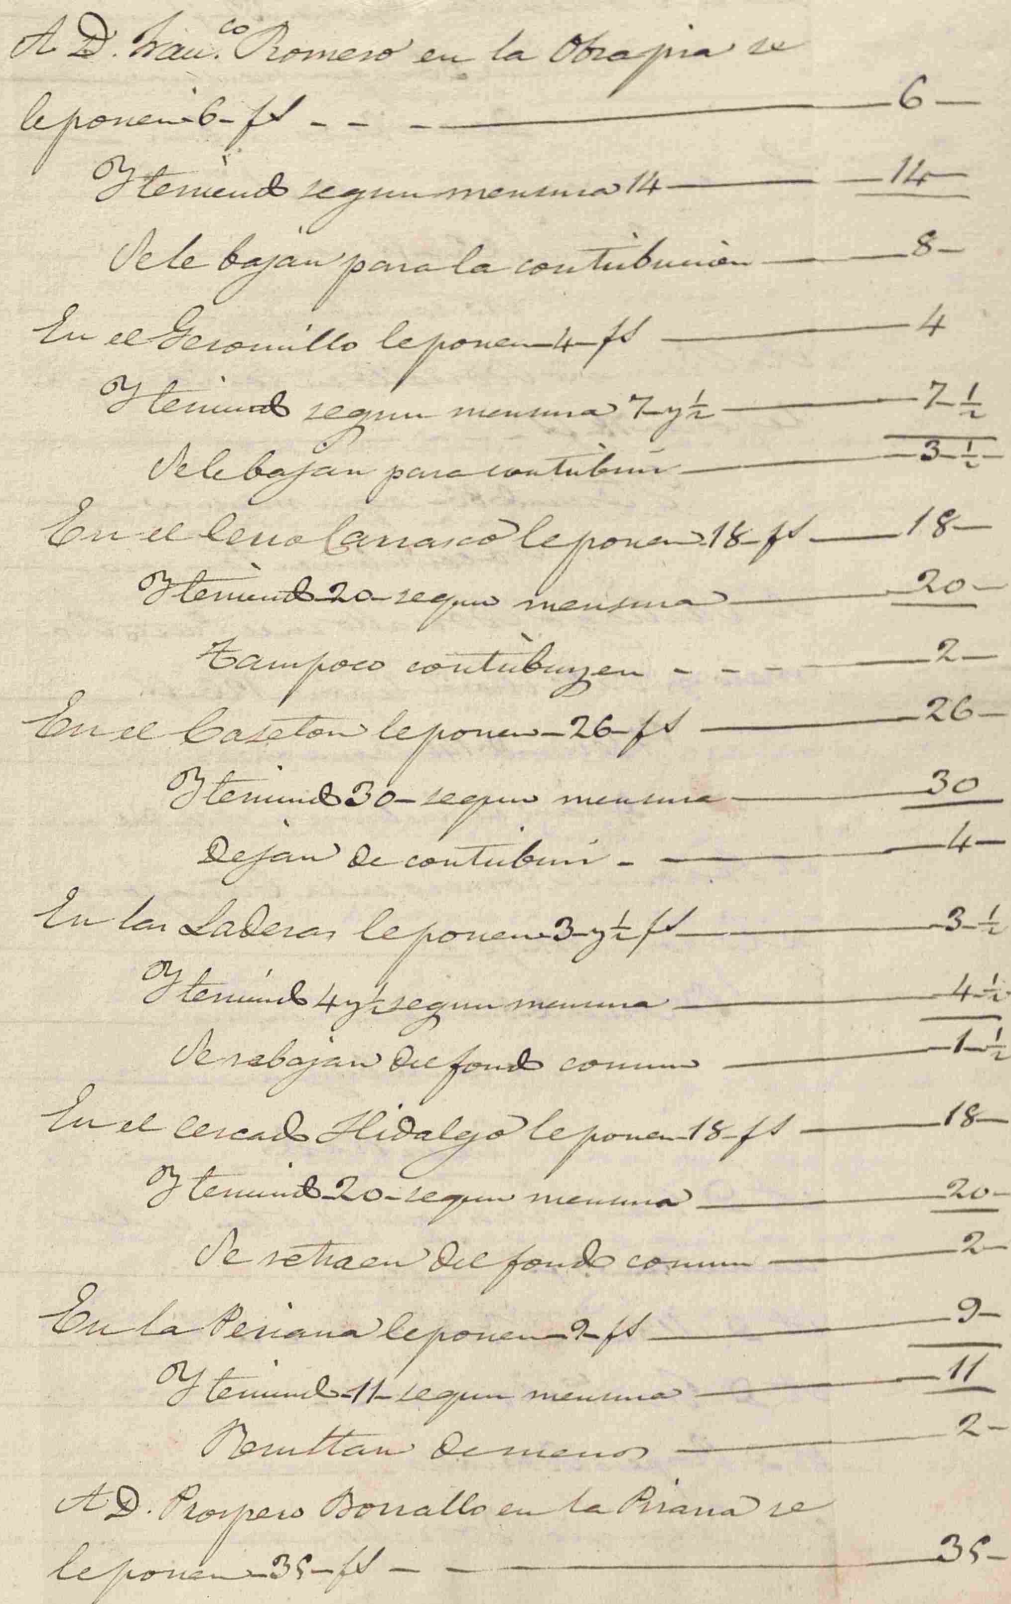 A D. Fran.co Romero en la Obrapia se
le ponen 6 fs - - - 6
Y teniendo segun mensura 14 14
Se le bajan para la contribucion 8
En el Geromillo le ponen 4 fs 4
Y teniendo segun mensura 7 y ½ 7 ½
Se le bajan para contribuir 3 ½
En el Cerro Carrasco le ponen 18 fs 18
Y teniendo 20 segun mensura 20
tampoco contribuyen - - - 2
En el Caseton le ponen 26 fs 26
Y teniendo 30 segun mensura 30
Dejan de contribuir - 4
En las Laderas le ponen 3 y ½ fs 3 ½
Y teniendo 4 y ½ segun mensura 4 ½
Se rebajan del fondo comun 1 ½
En el cercado Hidalgo le ponen 18 fs 18
Y teniendo 20 segun mensura 20
Se retraen del fondo comun 2
En la Periana le ponen 9 fs 9
Y teniendo 11 segun mensura 11
Resultan de menos 2
A D. Prospero Borrallo en la Piriana se
le ponen 35 fs - - 35